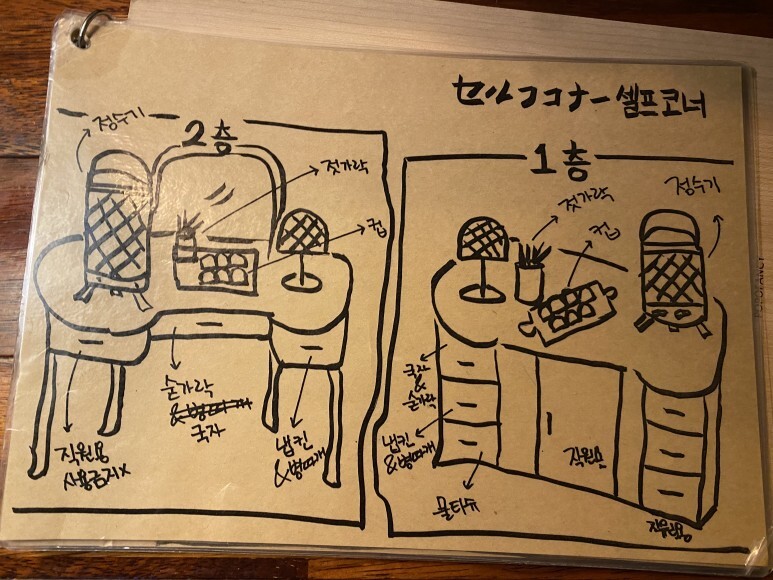 セルフコナー 셀프코너
2층
정수기
젓가락
컵
숟가락
&병따개
국자
냅킨
&병따개
직원용
사용금지x
1층
정수기
젓가락
컵
국자
&
숟가락
냅킨
&병따개
물티슈
직원용
직원용